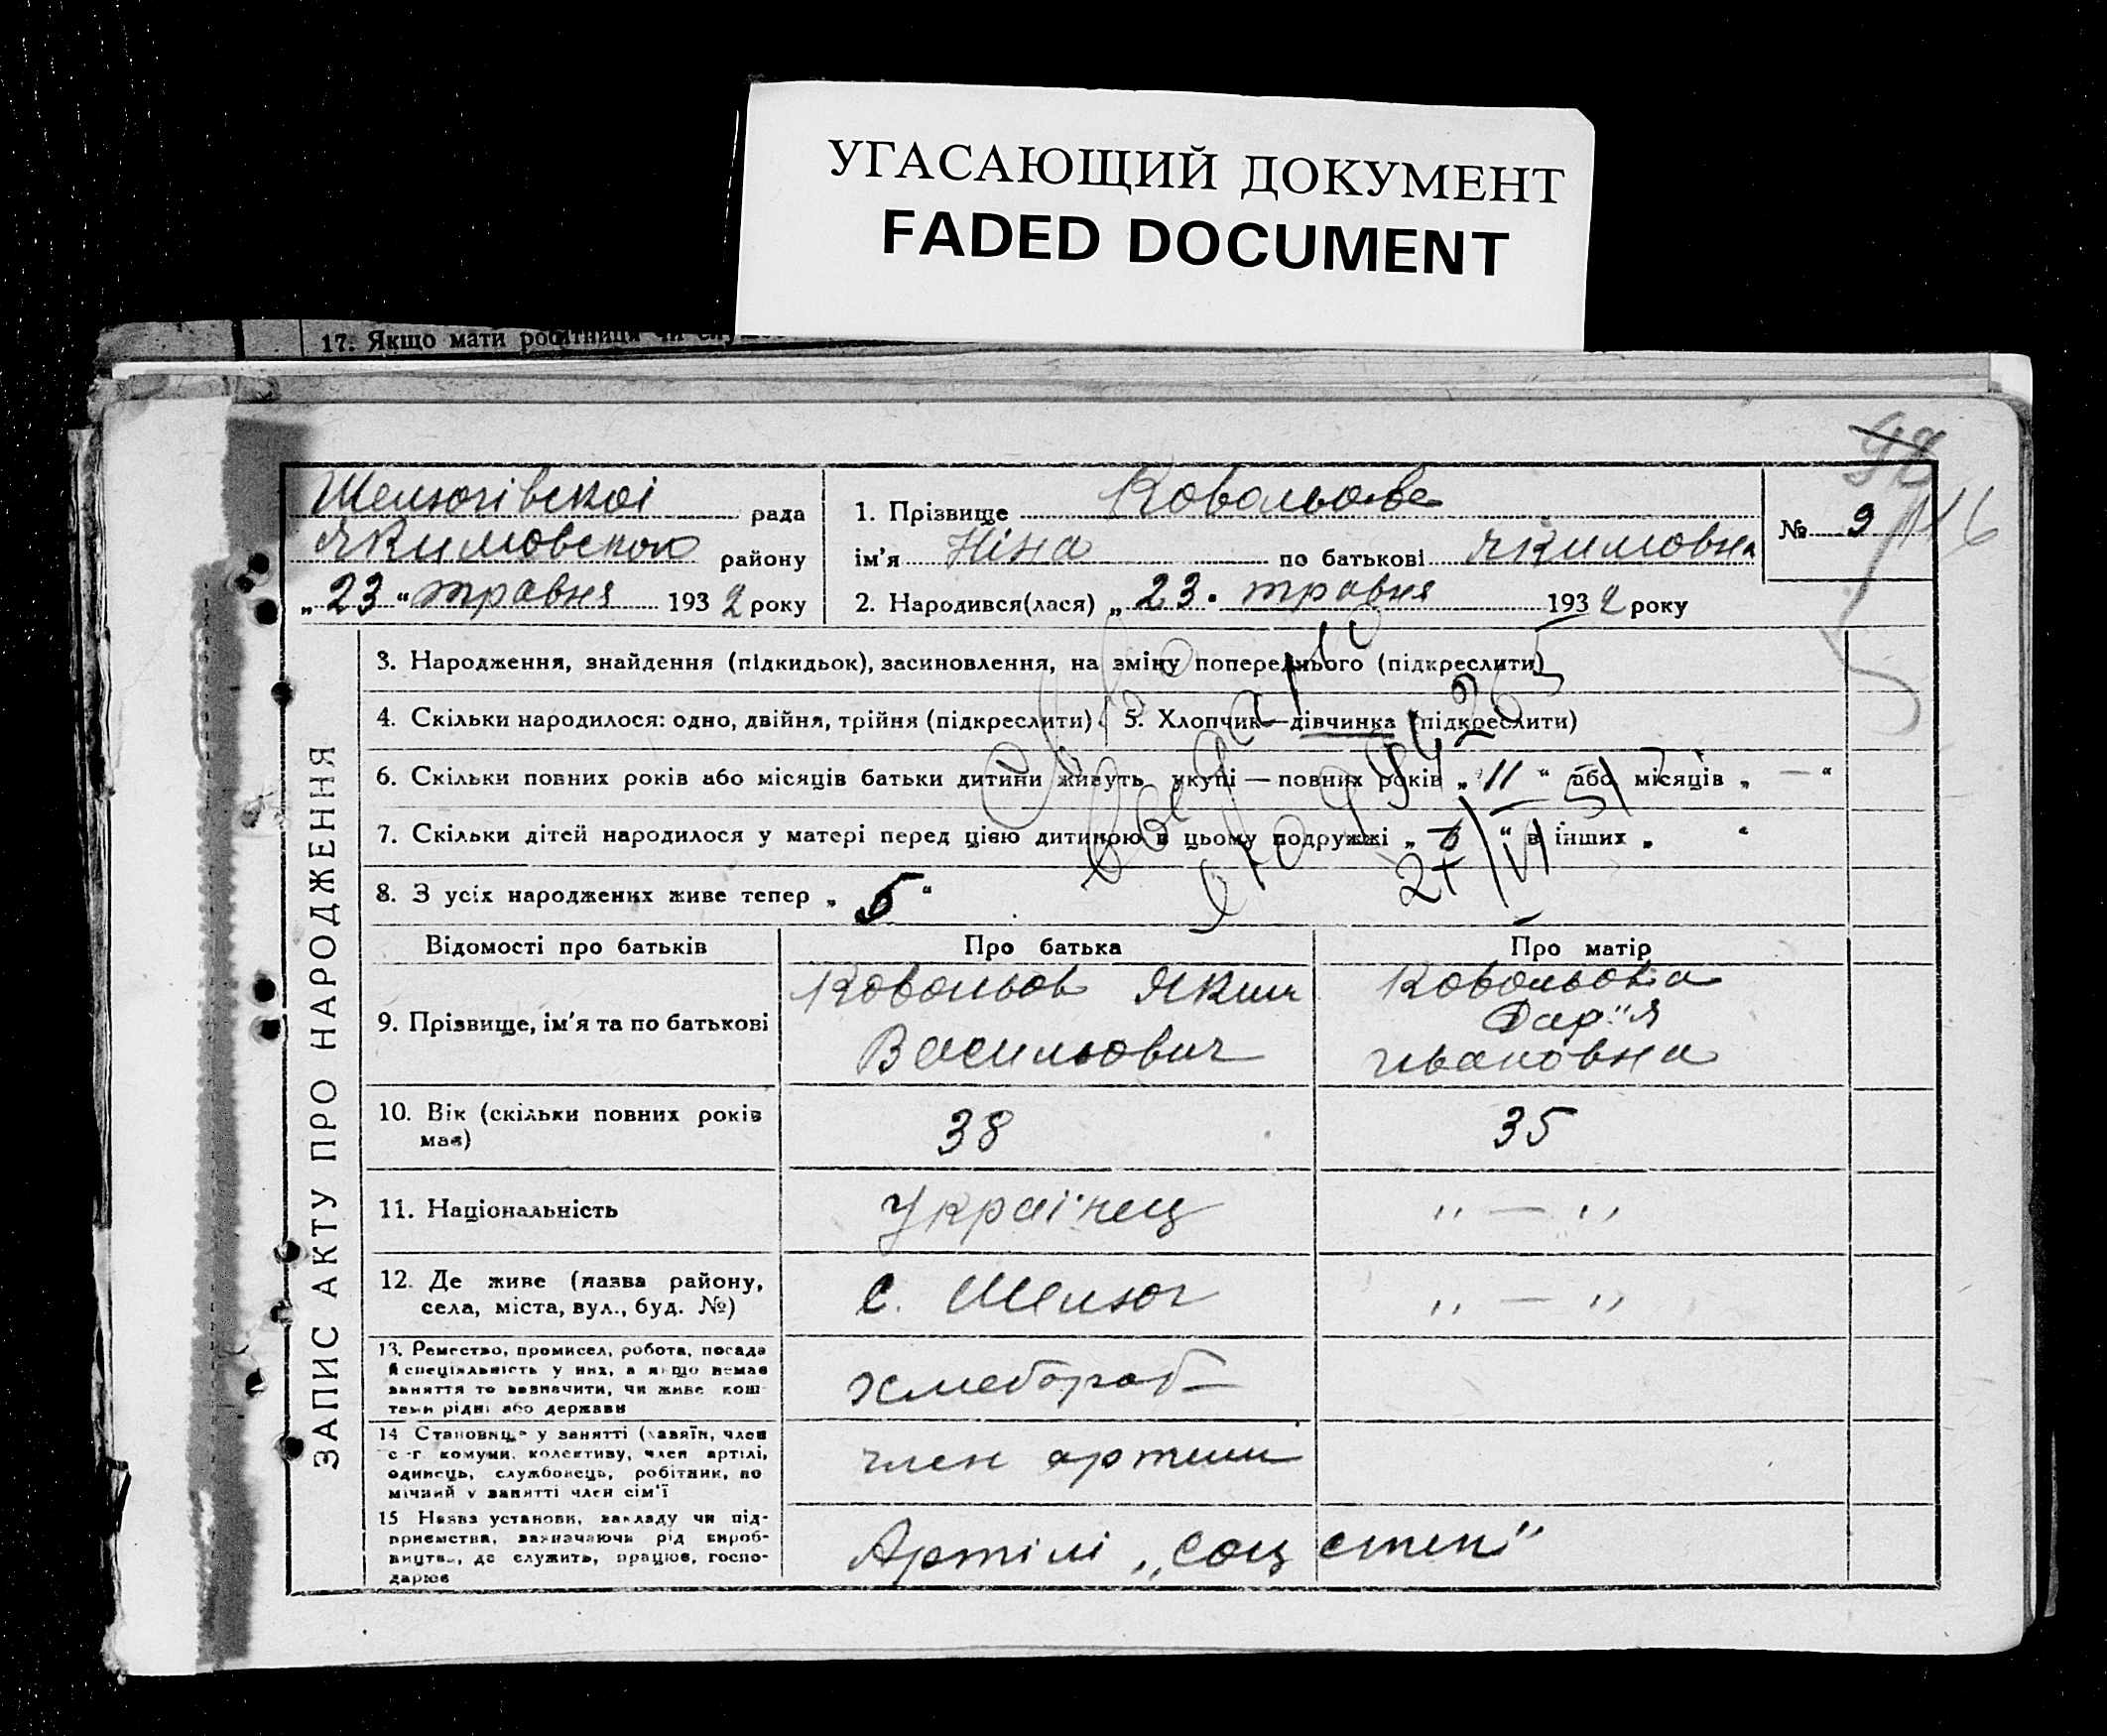 УГАСАЮЩИЙ ДОКУМЕНТ
FADED DOCUMENT
17. Якщо мати робітниця чи
98
116
Шелюгівскої рада
Якимовского району
„23“ травня 1932 року
1. Прізвище Ковальова
ім'я Ніна по батькові Якимовна
2. Народився(лася) „23. травня 1932 року
№ 9
ЗАПИС АКТУ ПРО НАРОДЖЕННЯ
3. Народження, знайдення (підкидьок), засиновлення, на зміну попереднього (підкреслити)
4. Скільки народилося: одно, двійня, трійня (підкреслити). 5. Хлопчик—дівчинка (підкреслити)
6. Скільки повних років або місяців батьки дитини живуть укупі — повних років „11“ або місяців „—“
7. Скільки дітей народилося у матері перед цією дитиною в цьому подружжі „ “ в інших „ “
8. З усіх народжених живе тепер „5“
Відомості про батьків Про батька Про матір
9. Прізвище, ім'я та по батькові
Ковальов Яким
Васильович
Ковальова
Дар"я
Івановна
10. Вік (скільки повних років
має)
38 35
11. Національність Українец „ — „
12. Де живе (назва району,
села, міста, вул., буд. №)
с. Шелюг „ — „
13. Ремество, промисел, робота, посада
й спеціяльність у них, а якщо немає
заняття то зазначити, чи живе кош-
теми рідні або держави
хлебороб
14 Становище у занятті (хазяїн, член
с.-г. комуни, колективу, член артілі,
одинець, службовець, робітник, по
мічний у занятті член сім'ї
член артили
15 Назва установи, закладу чи під-
приємства, зазначаючи рід вироб-
ництва, де служить, працює, госпо-
дарює
Артілі „Соц степ"